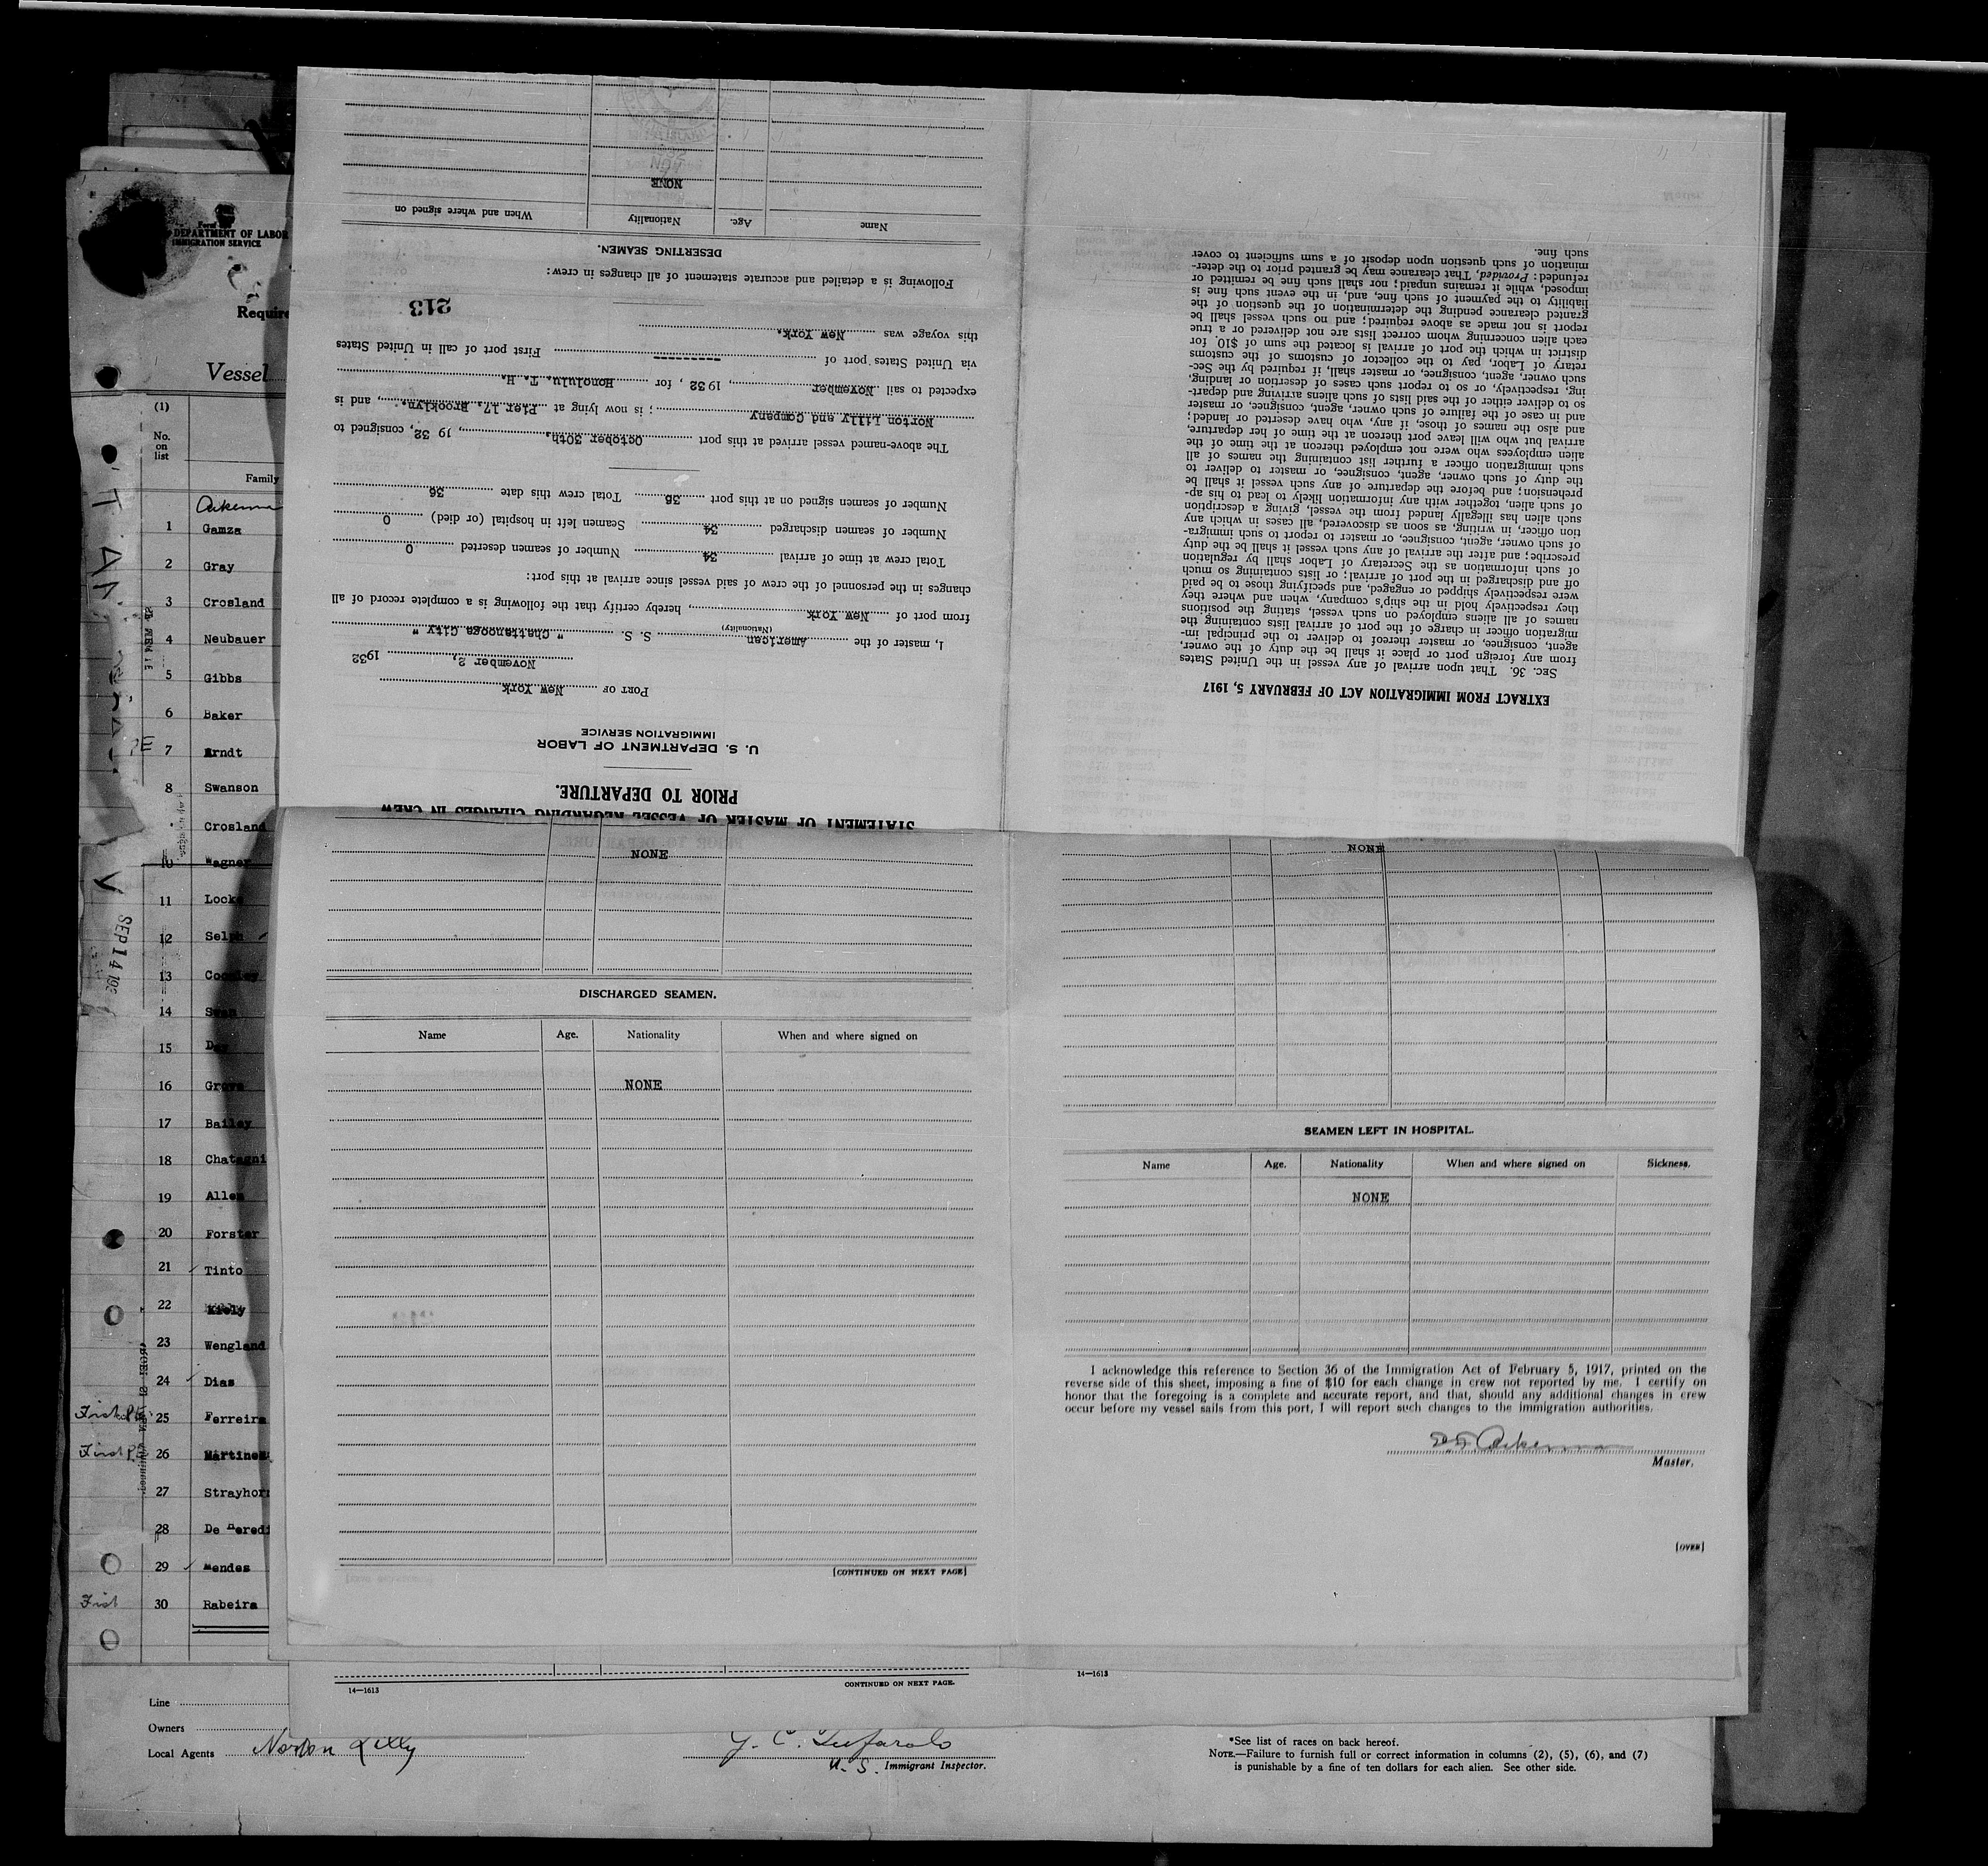 DEPARTMENT OF LABOR
IMMIGRATION SERVICE
Require
Vessel
(1)
No.
on
list
Family
Ackerman
1 Gamza
2 Gray
3 Crosland
4 Neubauer
5 Gibbs
6 Baker
7 Arndt
8 Swanson
Crosland
10 Wagner
11 Locke
12 Selph
13
14 Swan
15 Day
16 Grove
17 Bailey
18 Chatagni
19 Allen
20 Forster
21 Tinto
22 Kiely
23 Wengland
24 Dias
25 Ferreira
26 Martinez
27 Strayhor
28 De Heredi
29 Mendes
30 Rabeira
SEP 14 193
First
First
First
Line
Owners
Local Agents Norton Lilly
STATEMENT OF MASTER OF VESSEL REGARDING CHANGES IN CREW
PRIOR TO DEPARTURE.
U. S. DEPARTMENT OF LABOR
IMMIGRATION SERVICE
PORT OF New York
November 2, 1932
I, master of the American S. S. " Chattanooga City "
(Nationality)
from port of New York, hereby certify that the following is a complete record of all
changes in the personnel of the crew of said vessel since arrival at this port:
Total crew at time of arrival 34 Number of seamen deserted 0
Number of seamen discharged 34 Seamen left in hospital (or died) 0
Number of seamen signed on at this port 36 Total crew this date 36
The above-named vessel arrived at this port October 30th, 19 32, consigned to
Norton Lilly and Company; is now lying at Pier 17, Brooklyn., and is
expected to sail November, 1932, for Honolulu, T. H.
via United States port of --------- First port of call in United States
this voyage was New York.
213
Following is a detailed and accurate statement of all changes in crew:
DESERTING SEAMEN.
Name Age. Nationality When and where signed on
NONE
EXTRACT FROM IMMIGRATION ACT OF FEBRUARY 5, 1917
SEC. 36. That upon arrival of any vessel in the United States
from any foreign port or place it shall be the duty of the owner,
agent, consignee, or master thereof to deliver to the principal im-
migration officer in charge of the port of arrival lists containing the
names of all aliens employed on such vessel, stating the positions
they respectively hold in the ship's company, when and where they
were respectively shipped or engaged, and specifying those to be paid
off and discharged in the port of arrival; or lists containing so much
of such information as the Secretary of Labor shall by regulation
prescribe; and after the arrival of any such vessel it shall be the duty
of such owner, agent, consignee, or master to report to such immigra-
tion officer, in writing, as soon as discovered, all cases in which any
such alien has illegally landed from the vessel, giving a description
of such alien, together with any information likely to lead to his ap-
prehension; and before the departure of any such vessel it shall be
the duty of such owner, agent, consignee, or master to deliver to
such immigration officer a further list containing the names of all
alien employees who were not employed thereon at the time of the
arrival but who will leave port thereon at the time of her departure,
and also the names of those, if any, who have deserted or landed;
and in case of the failure of such owner, agent, consignee, or master
so to deliver either of the said lists of such aliens arriving and depart-
ing, respectively, or so to report such cases of desertion or landing,
such owner, agent, consignee, or master, shall, if required by the Sec-
retary of Labor, pay to the collector of customs of the customs
district in which the port of arrival is located the sum of $10. for
each alien concerning whom correct lists are not delivered or a true
report is not made as above required; and no such vessel shall be
granted clearance pending the determination of the question of the
liability to the payment of such fine, and, in the event such fine is
imposed, while it remains unpaid; nor shall such fine be remitted or
refunded: Provided, That clearance may be granted prior to the deter-
mination of such question upon deposit of a sum sufficient to cover
such fine.
NONE
DISCHARGED SEAMEN.
Name Age. Nationality When and where signed on
NONE
[CONTINUED ON NEXT PAGE]
NONE
SEAMEN LEFT IN HOSPITAL.
Name Age. Nationality When and where signed on Sickness.
NONE
I acknowledge this reference to Section 36 of the Immigration Act of February 5, 1917, printed on the
reverse side of this sheet, imposing a fine of $10 for each change in crew not reported by me. I certify on
honor that the foregoing is a complete and accurate report, and that, should any additional changes in crew
occur before my vessel sails from this port, I will report such changes to the immigration authorities.
Ackerman
Master.
[OVER]
14—1613
CONTINUED ON NEXT PAGE.
14—1613
U. S. Immigrant Inspector.
*See list of races on back hereof.
NOTE.—Failure to furnish full or correct information in columns (2), (5), (6), and (7)
is punishable by a fine of ten dollars for each alien. See other side.